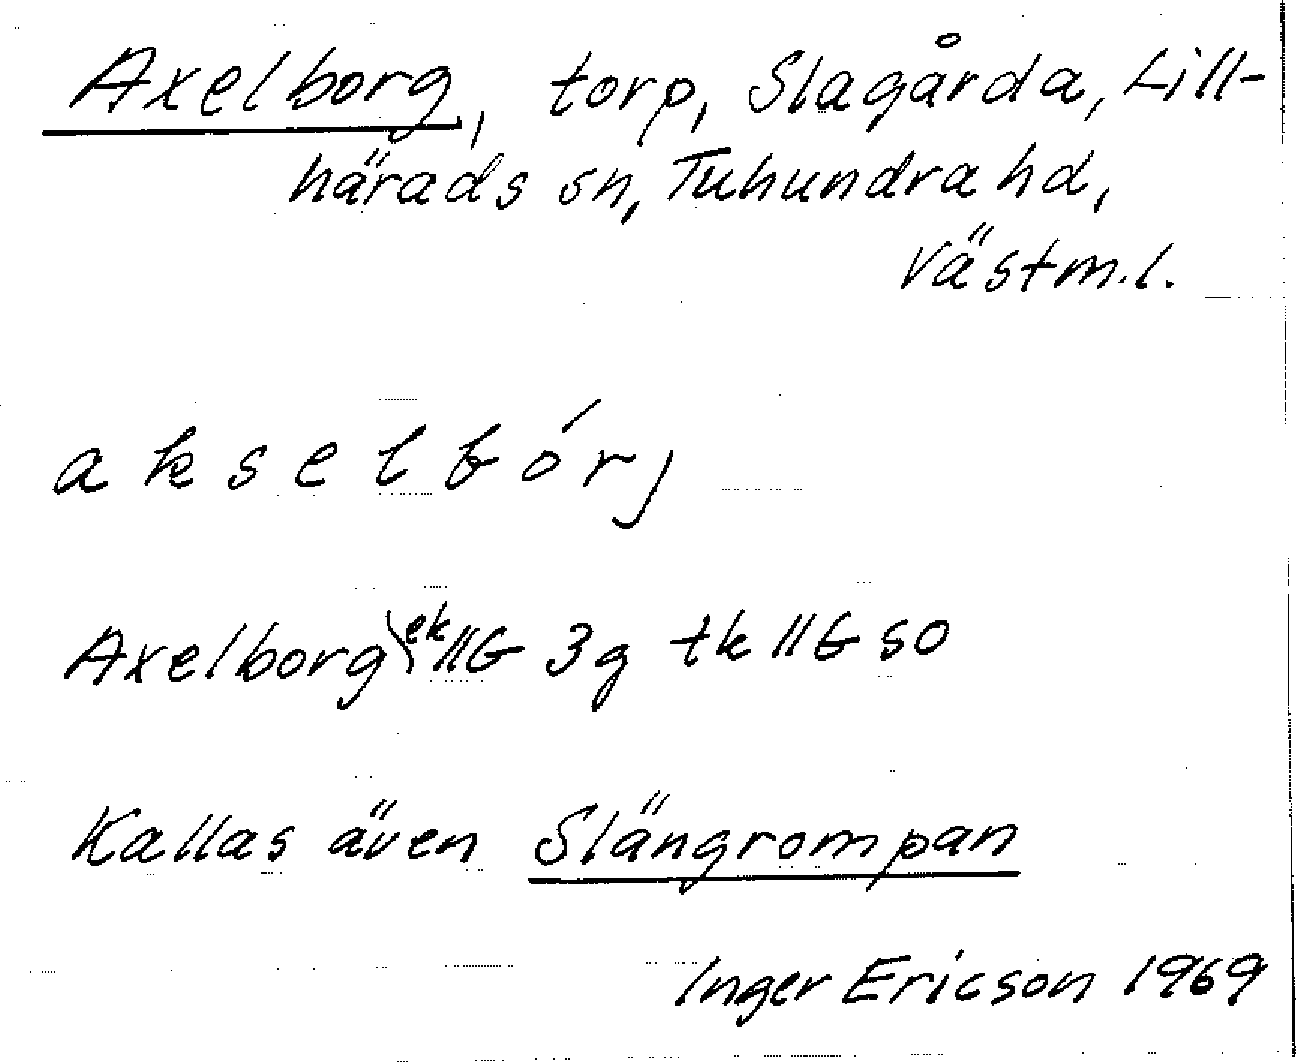 Axelborg, torp, Slagårda, Lill-
härads sn, Tuhundra hd,
Västm.l.
a k s e l b ó r j
Axelborg ek 11G 3g tk 11G SO
Kallas även Slängrompan
Inger Ericson 1969